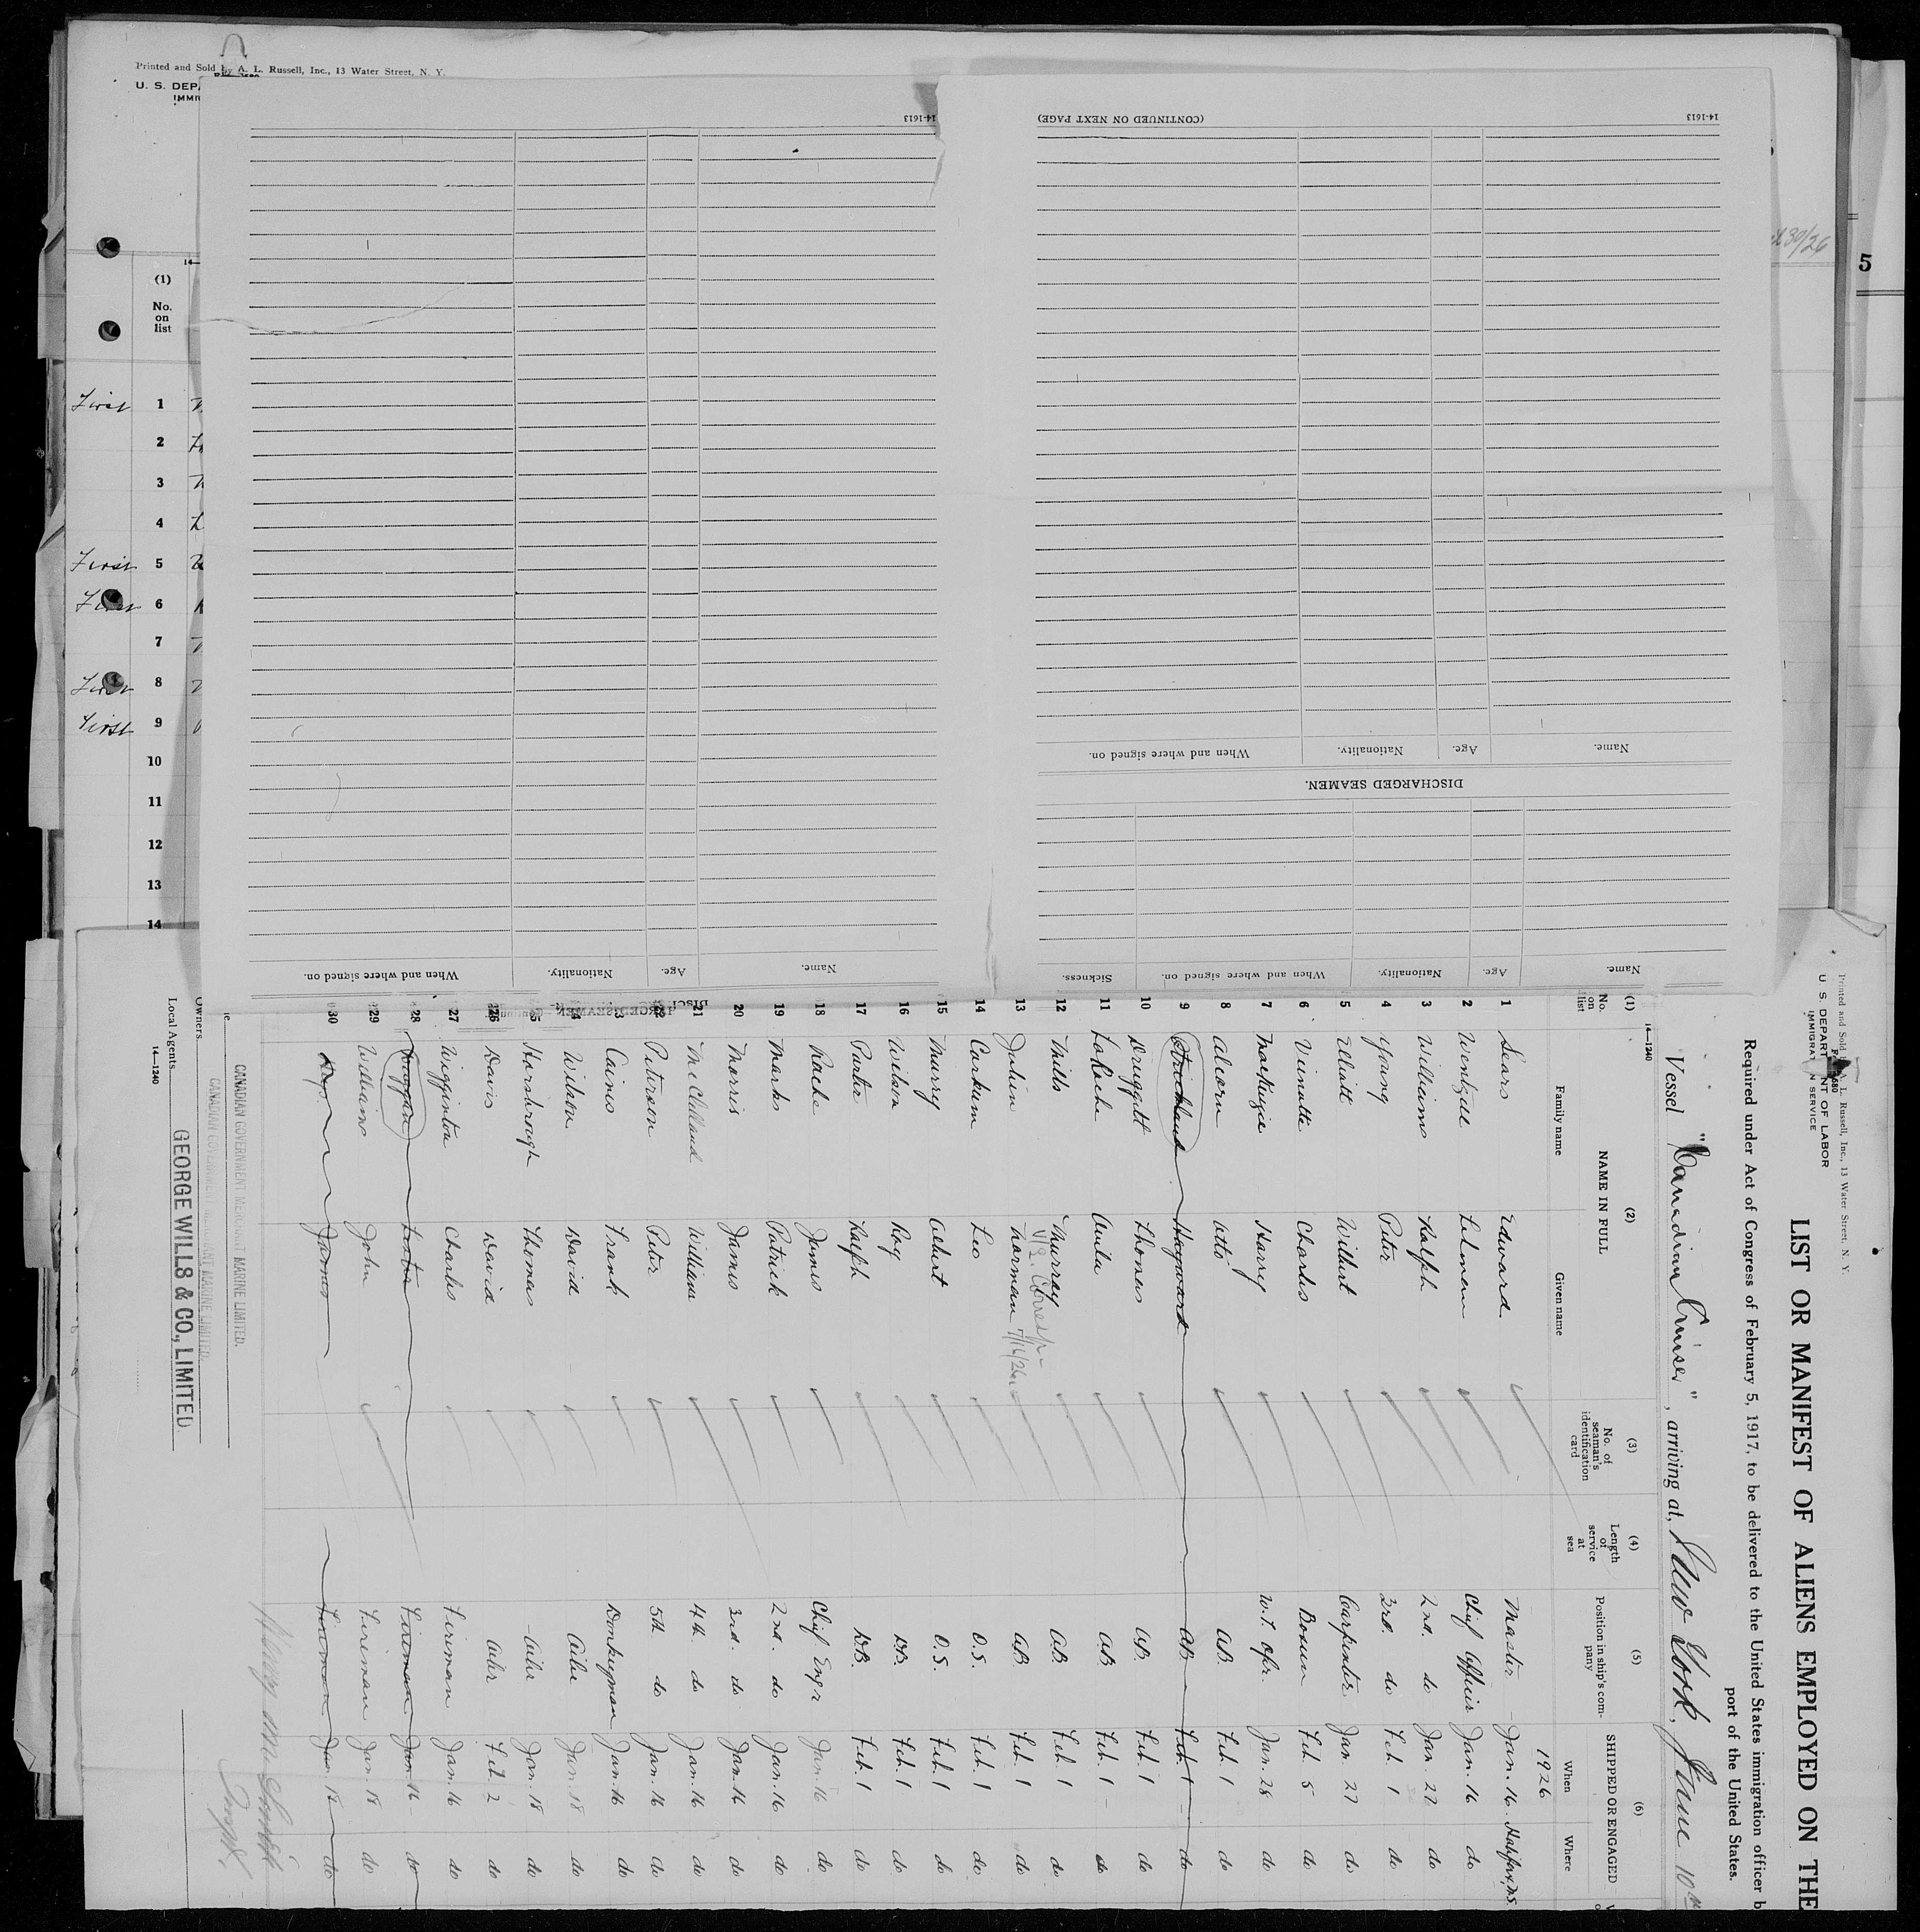 Printed and Sold by A. L. Russell, Inc., 13 Water Street, N. Y.
U. S. DEPA
IMMI
(1)
No.
on
list
First 1
2
3
4
First 5
First 6
7
First 8
First 9
10
11
12
13
14
30/26
5
14-1613
(CONTINUED ON NEXT PAGE)
14-1613
Name. Age. Nationality. When and where signed on.
DISCHARGED SEAMEN.
Name. Age. Nationality. When and where signed on. Sickness.
Name. Age. Nationality. When and where signed on.
Printed and Sold A. L. Russell, Inc., 13 Water Street, N. Y.
U. S. DEPART NT OF LABOR
IMMIGRAT N SERVICE
LIST OR MANIFEST OF ALIENS EMPLOYED ON THE
Required under Act of Congress of February 5, 1917, to be delivered to the United States immigration officer b
port of the United States.
Vessel "Canadian Cruiser", arriving at New York, June 10th
14—1240
(1) (2) (3) (4) (5) (6)
No. on list
NAME IN FULL
Family name Given name
No. of seaman's identification card
Length of service at sea
Position in ship's company
SHIPPED OR ENGAGED
When Where
1926
1 Sears Edward Master Jan. 16 Halifax, N.S.
2 Wentzell Coleman Chief Officer Jan. 16 do
3 Williams Ralph 2nd. do Jan. 27 do
4 Young Peter 3rd. do Feb. 1 do
5 Elliott Wilbert Carpenter Jan. 27 do
6 Vinotte Charles Bosun Feb. 5 do
7 MacKenzie Harry W.T. Opr. Jan. 28 do
8 Ahern Otto A.B. Feb. 1 do
9 Strickland Hayward A.B. Feb. 1 do
10 Druggett Thomas A.B. Feb. 1 do
11 LaRoche Aubla A.B. Feb. 1 do
12 Mills Murray A.B. Feb. 1 do
13 Julien Norman 7/16/26 A.B. Feb. 1 do
14 Corkum Leo O.S. Feb. 1 do
15 Murry Albert O.S. Feb. 1 do
16 Wilson Roy D.B. Feb. 1 do
17 Parker Ralph D.B. Feb. 1 do
18 Roche James Chief Engr Jan. 16 do
19 Marks Patrick 2nd. do Jan. 16 do
20 Morris James 3rd. do Jan. 16 do
21 McClelland William 4th. do Jan. 16 do
22 Peterson Peter 5th do Jan. 16 do
23 Cairns Frank Donkeyman Jan. 16 do
24 Wilson David Oiler Jan. 18 do
25 Hornsborough Thomas Oiler Jan. 18 do
26 Davis David Oiler Feb. 2 do
27 Wigginton Charles Fireman Jan. 16 do
28 Duggan Fireman Jan. 16 do
29 Williams John Fireman Jan. 18 do
30 James Fireman Jan. 18 do
CANADIAN GOVERNMENT MERCHANT MARINE LIMITED.
CANADIAN GOVERNMENT MERCHANT MARINE LIMITED.
Owners
GEORGE WILLS & CO., LIMITED.
Local Agents
14—1240